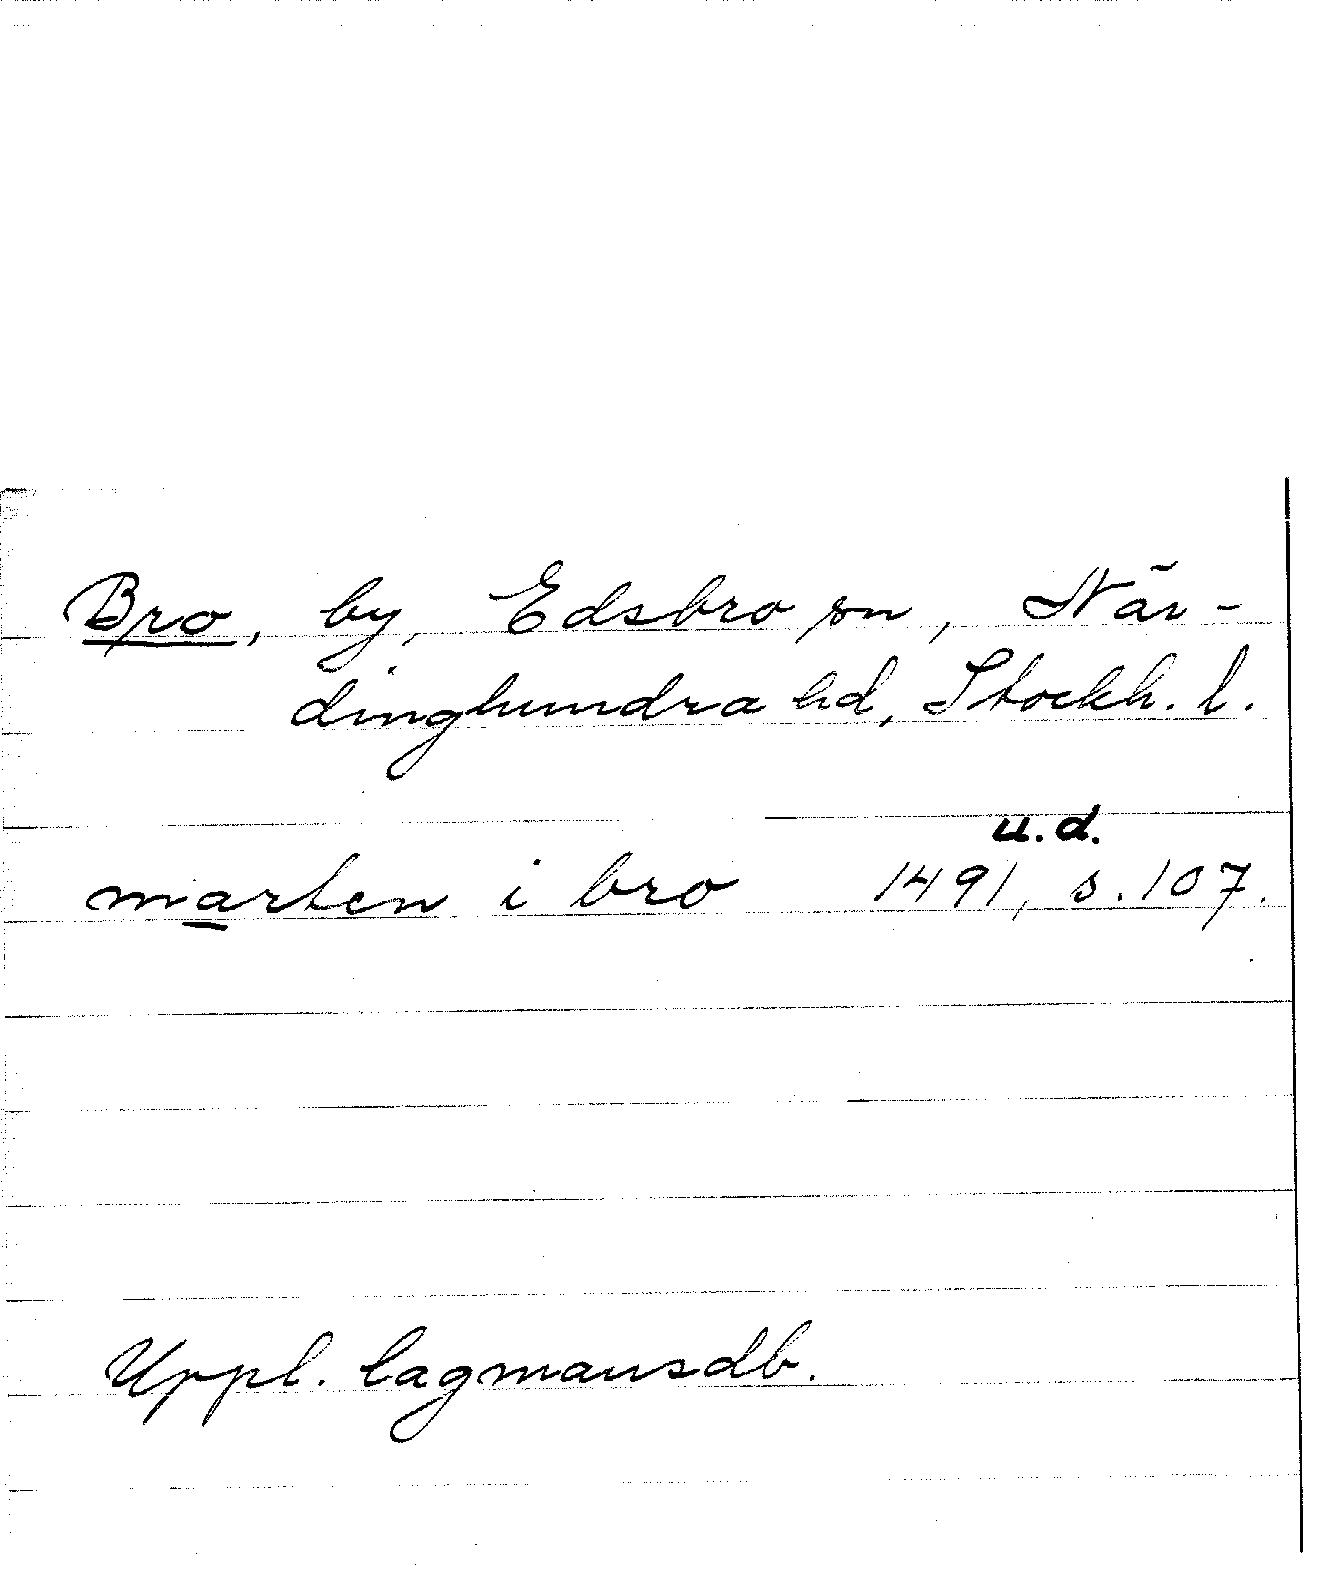 Bro, by, Edsbro sn, När-
dinghundra hd, Stockh. l.
u.d.
marten i bro 1491, s. 107.
Uppl. lagmansdb.